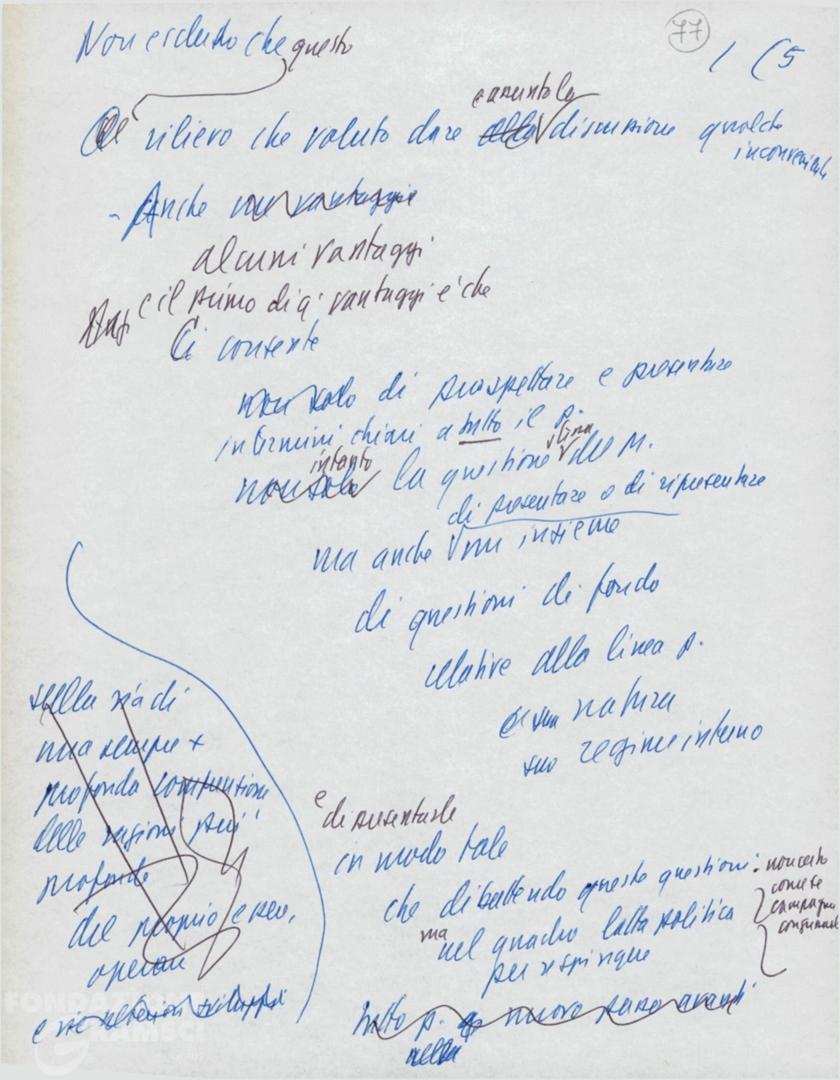 77
1 (5
Non escludo che questo
rilievo che voluto dare alla discussione qualche
inconveniente
- Anche un vantaggio
alcuni vantaggi
e il primo di q. vantaggi è che
Ci consente
non solo di prospettare e presentare
in termini chiari a tutto il p.
intanto
non solo la questione del M.
di presentare o di ripresentare
ma anche un insieme
di questioni di fondo
relative alla linea p.
sua natura
suo regime interno
e di presentarle
in modo tale
che dibattendo queste questioni: non certo
come se
nel quadro lotta politica
ma
per respingere
tutto p. nuovo passo avanti
nella
sulla via di
una sempre +
profonda comprensione
delle ragioni più
profonde
del proprio essere,
operare
e sviluppi
FONDAZIONE
GRAMSCI